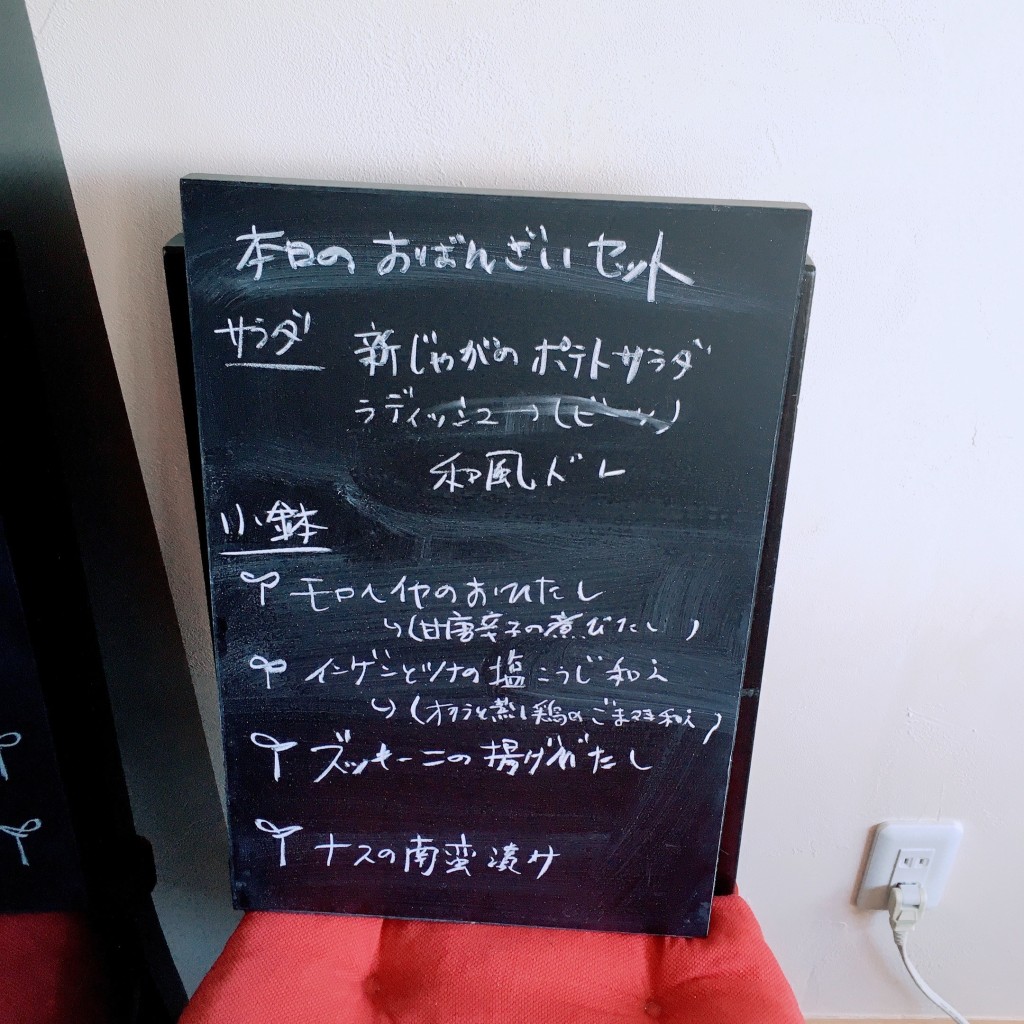 本日の おばんざいセット
サラダ 新じゃがの ポテトサラダ
ラディッシュ → (ビーツ)
和風ドレ
小鉢
モロヘイヤのおひたし
↳(甘唐辛子の煮びたし)
インゲンとツナの塩こうじ和え
↳(オクラと蒸し鶏のごまマヨ和え)
ズッキーニの揚げびたし
ナスの南蛮漬け